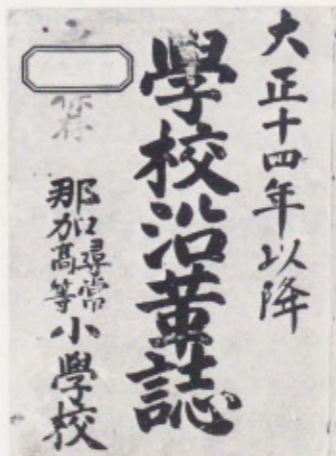 大正十四年以降
學校沿革誌
那加尋常高等小學校